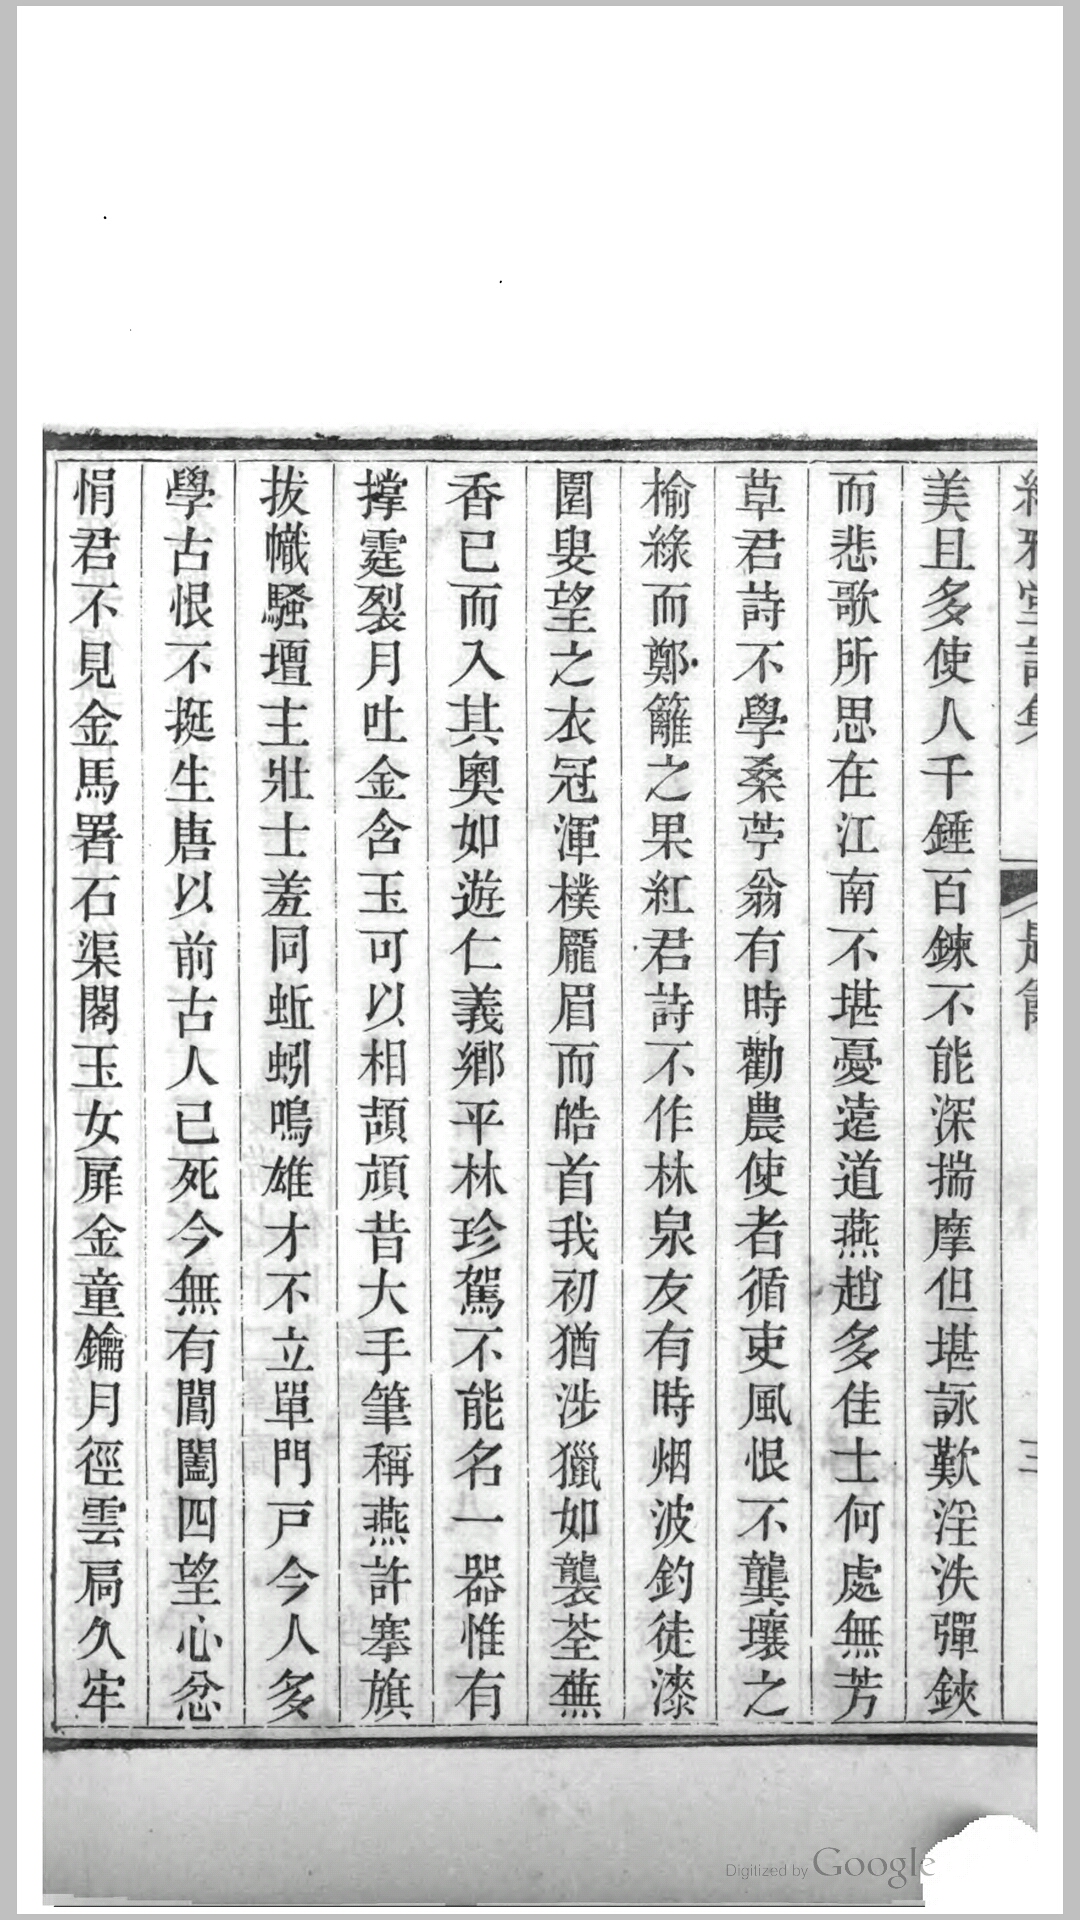 美且多使人千錘百鍊不能深揣摩但堪詠歎淫泆彈鋏
而悲歌所思在江南不堪憂遠道燕趙多佳士何處無芳
草君詩不學桑苧翁有時勸農使者循吏風恨不龔壤之
榆綠而鄭籬之果紅君詩不作林泉友有時烟波釣徒漆
園叟望之衣冠渾樸龐眉而皓首我初猶涉獵如襲荃蕪
香已而入其奧如遊仁義鄉平林珍駕不能名一器惟有
撑霆裂月吐金含玉可以相頡頏昔大手筆稱燕許搴旗
拔幟騷壇主壯士羞同蚯蚓鳴雄才不立單門戸今人多
學古恨不挺生唐以前古人已死今無有閶闔四望心忿
悁君不見金馬署石渠閣玉女扉金童鑰月徑雲扃久牢
Digitized by Google